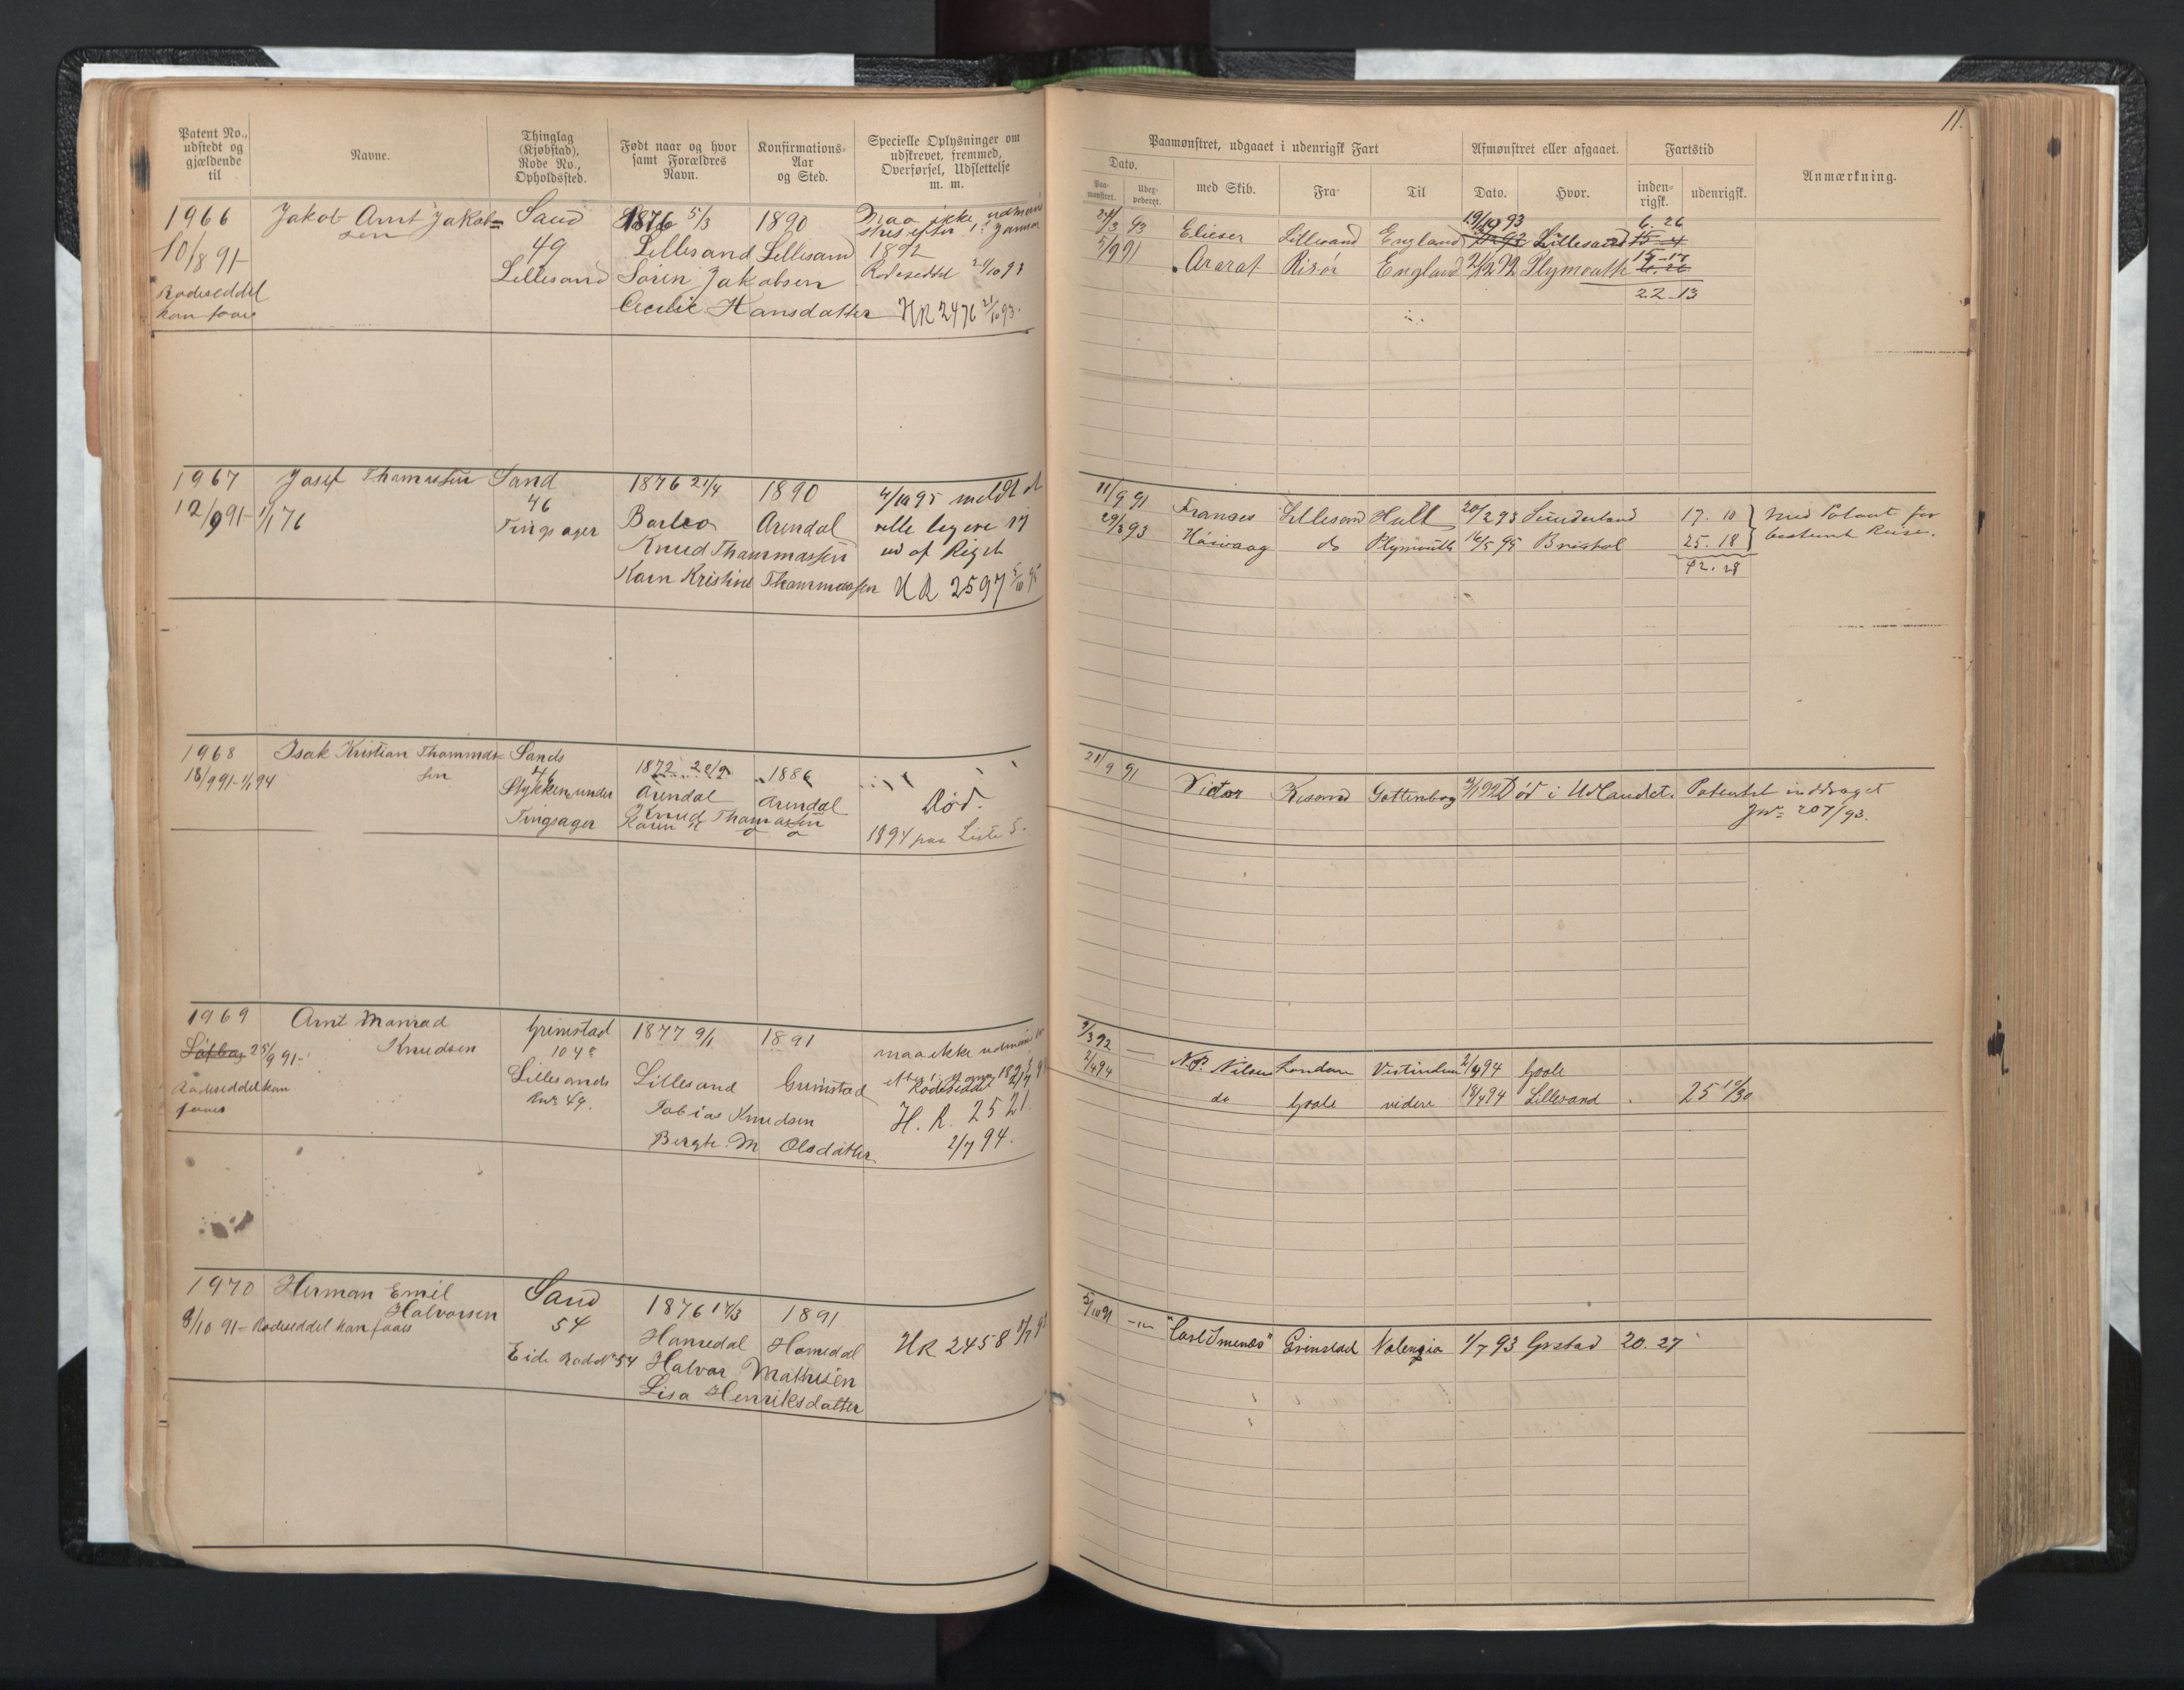 11.
Patent No., udstedt og gjældende til
Navne.
Thinglag (Kjøbstad), Rode No., Opholdssted.
Født naar og hvor samt Forældres Navn.
Konfirmations-Aar og Sted.
Specielle Oplysninger om udskrevet, fremmed, Overførsel, Udslettelse m. m.
Paamønstret, udgaaet i udenrigsk Fart
Afmønstret eller afgaaet.
Fartstid
Anmærkning.
Dato.
Paa-mønstret.
Udex-pederet.
med Skib.
Fra
Til
Dato.
Hvor.
inden-rigsk.
udenrigsk.
1966 Jakob Arnt Jakob= Sand 1876 5/3 1890 Maa ikke udmøn
sen stres efter 1. Januar
10/8 91- 49 Lillesand Lillesand 1892
Lillesand Soren Jakobsen Rodeseddel 21/10 93
Rodeseddel Cecilie Hansdatter HR 2476 21/10 93.
kan faaes
24/3 93 Elieser Lillesand England 19/10 93 Lillesand 6-26
5/9 91 Ararat Risör England 21/12 92 Plymouth 15-17
22-13
1967 Josef Thomassen Sand 1876 21/4 1890 4/10 95 meldt at
12/9 91-1/1 76 46 Barbo Arendal ville begive sig
Tingsager Knud Thammassen ud af Riget
Karn Kristine Thammassen HR 2597 5/10 95
11/9 91 Franses Lillesand Hull 20/2 93 Sunderland 17. 10 } Med Patent for
29/3 93 Håivaag do Plymouth 16/5 95 Bristol 25. 18 } bestemt Reise.
42. 28
1968 Isak Kristian Thommas= Sands 1872 22/9 1886
sen 46
18/9 91-1/1 94 Stykken under Arendal Arendal Död.
Tingsager Knud Thomassen
Karen K 1894 paa Liste 5.
21/9 91 Victor Kr.sand Gottenborg 3/1 92 Död i Udlandet. Patentet inddraget
Jn= 207/93.
1969 Arnt Manrad Grimstad 1877 9/1 1891 maa ikke udmøns
Knudsen 1048
25/9 91- Lillesands Lillesand Grimstad Rodeseddel
Rodeseddel kan Rn= 49. Tobias Knudsen H. R. 2521
faaes Bergte M Olsdatter 2/7 94.
9/3 92 — N.P. Nilsen London Vestindien 2/4 94 Goole
2/4 94 do Goole videre 18/4 94 Lillesand 25 11/30
1970 Herman Emil Sand 1876 17/3 1891
Halvorsen 54
8/10 91- Rodeseddel kan faaes Homedal Homedal HR 2458
Eide Rode No 54 Halvor Mathisen
Lisa Henriksdatter
5/10 91 -"- Grimstad Valenzia 1/7 93 Grstad 20. 27